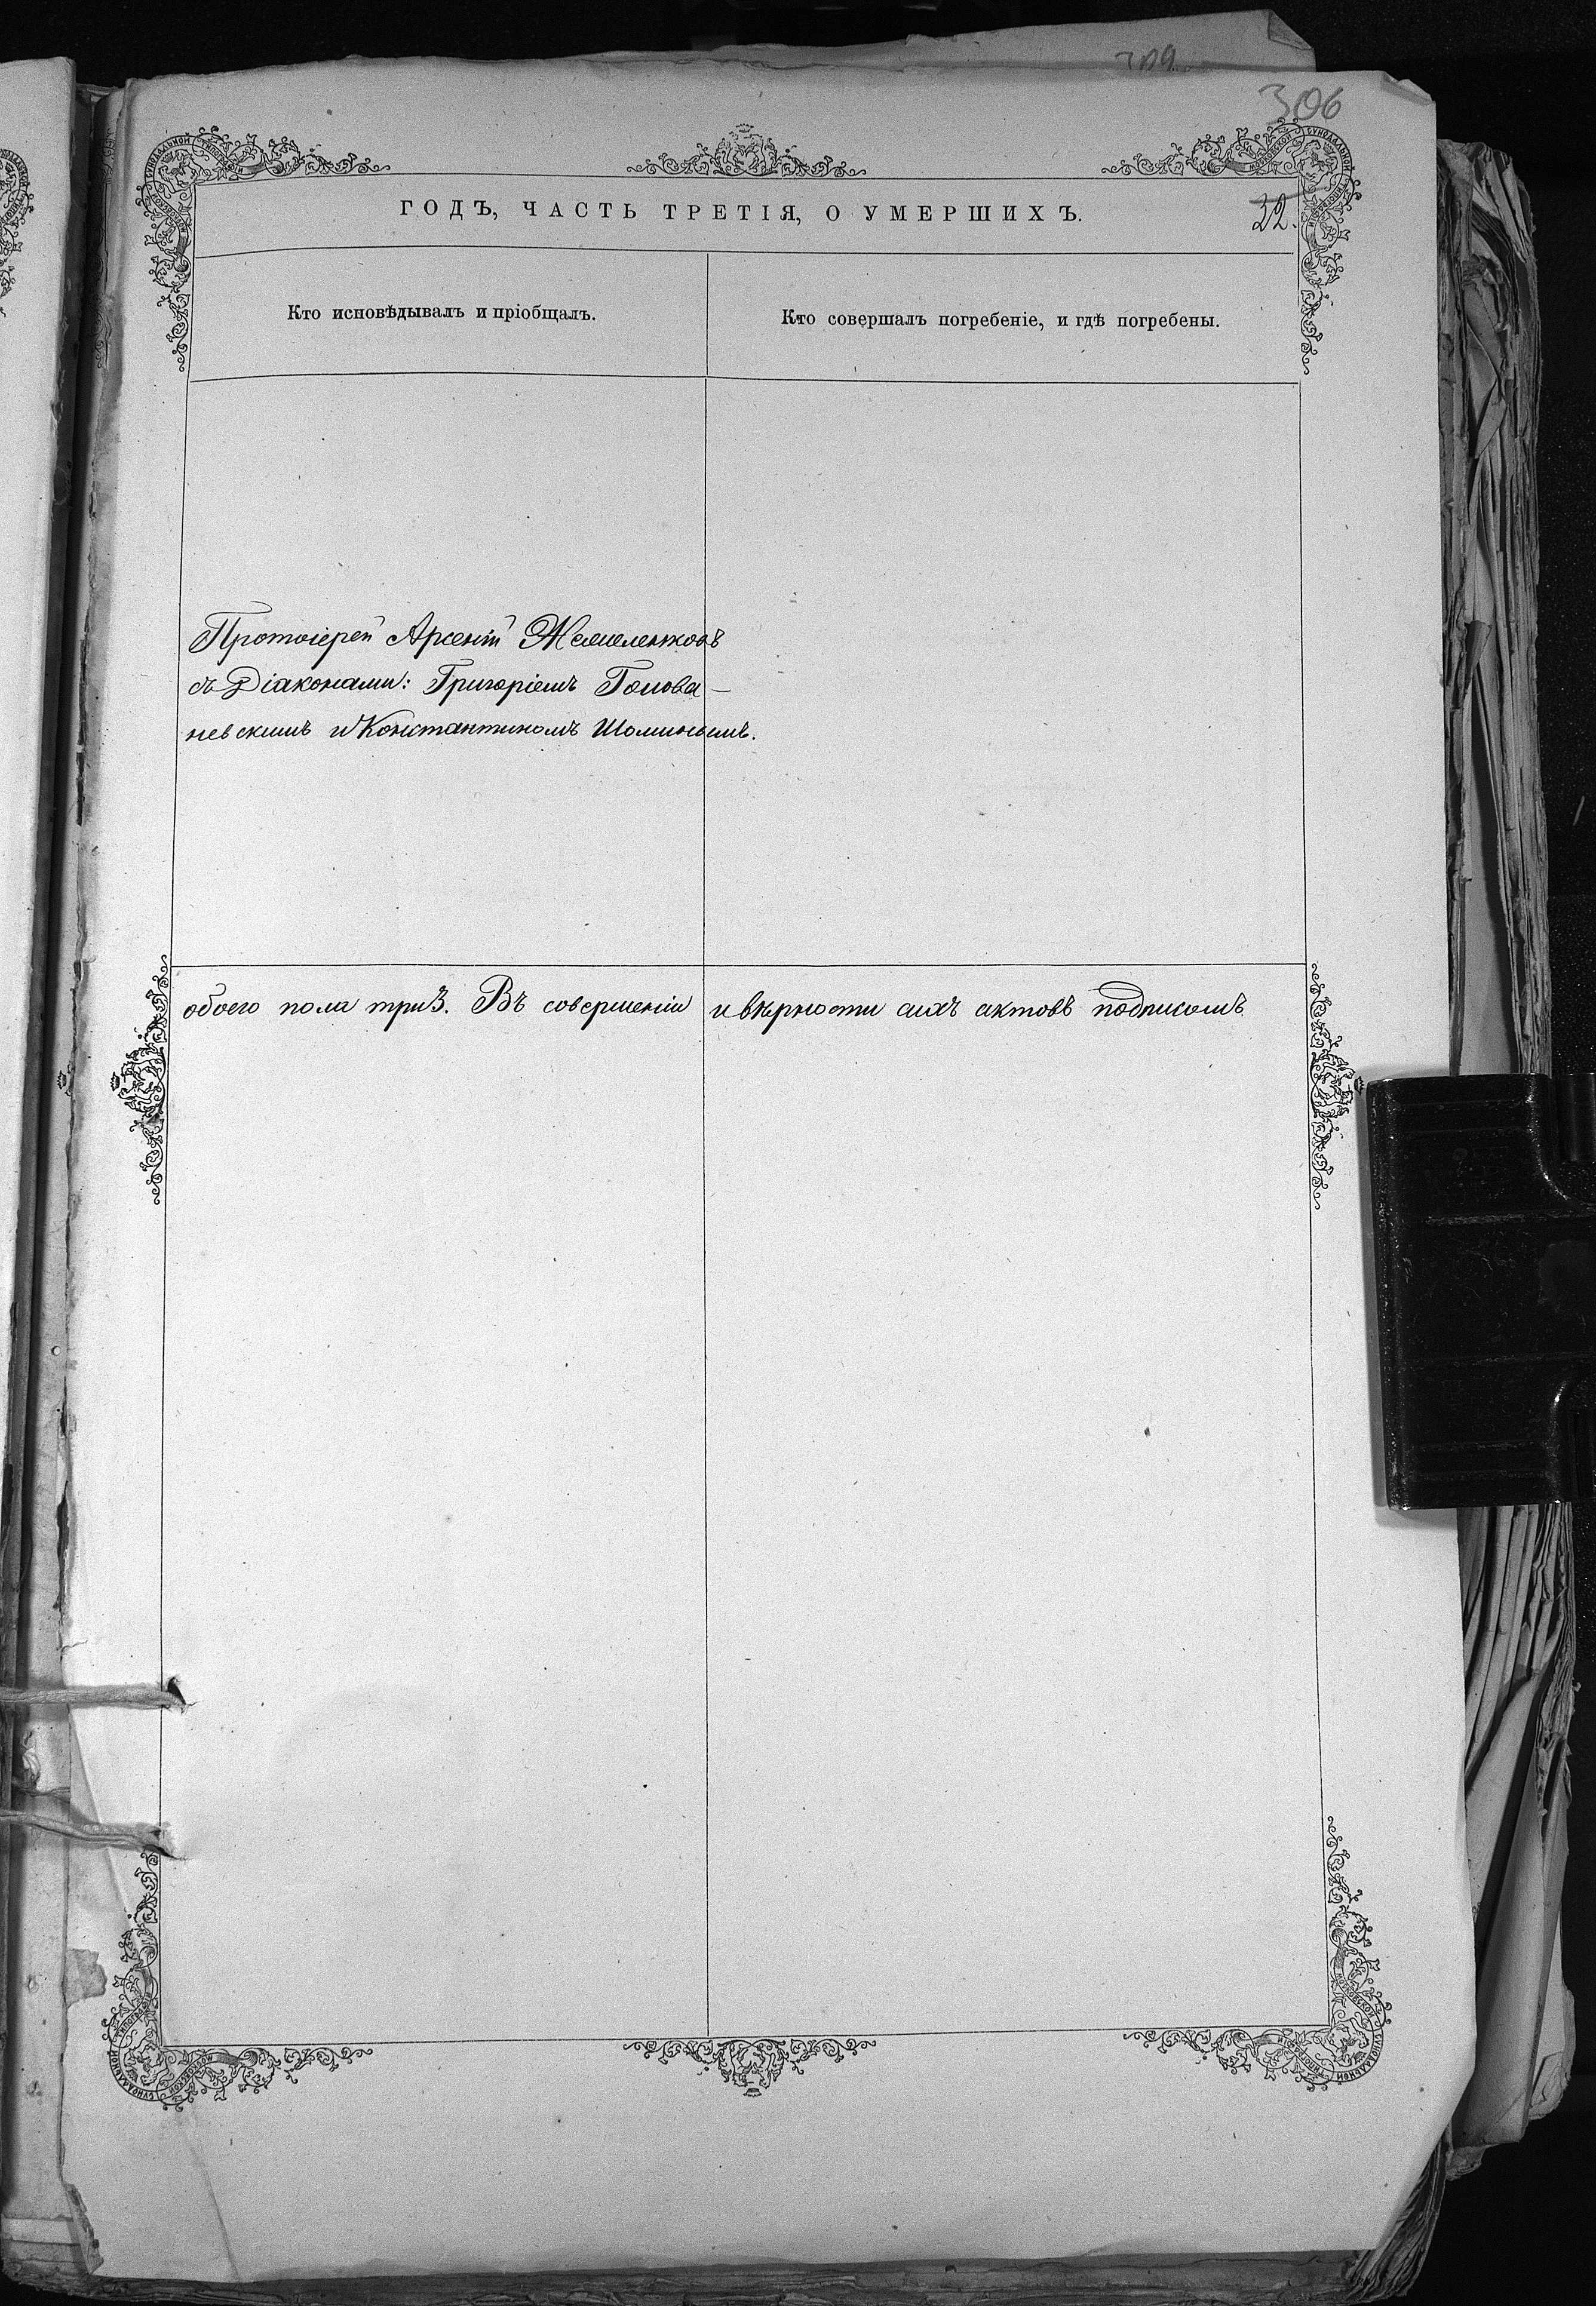 309
306
ГОДЪ, ЧАСТЬ ТРЕТІЯ, О УМЕРШИХЪ.
32.
Кто исповѣдывалъ и пріобщалъ.
Кто совершалъ погребеніе, и гдѣ погребены.
Протоіерей Арсеній
съ Діаконами: Григоріемъ Голова-
невскимъ и Константиномъ Шоминымъ.
обоего пола три 3. Въ совершеніи и вѣрности сихъ актовъ подписомъ